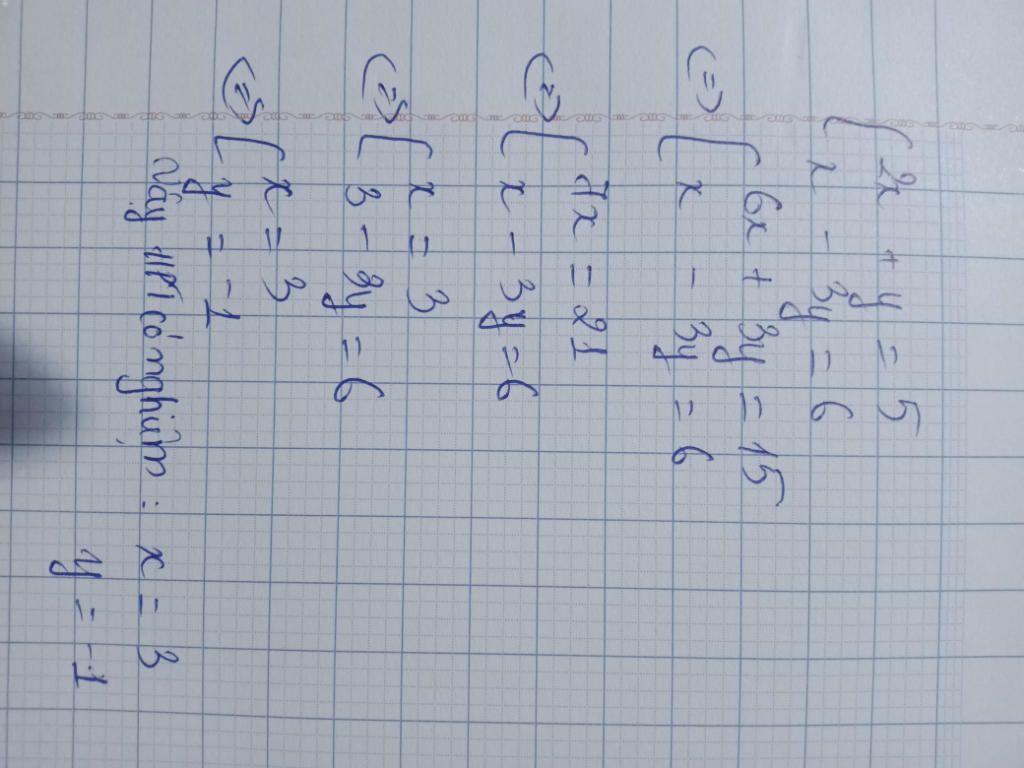 { 2x + y = 5
x - 3y = 6
(=> { 6x + 3y = 15
x - 3y = 6
(=> { 7x = 21
x - 3y = 6
(=> { x = 3
3 - 3y = 6
(=> { x = 3
y = -1
Vậy HPT có nghiệm : x = 3
y = -1